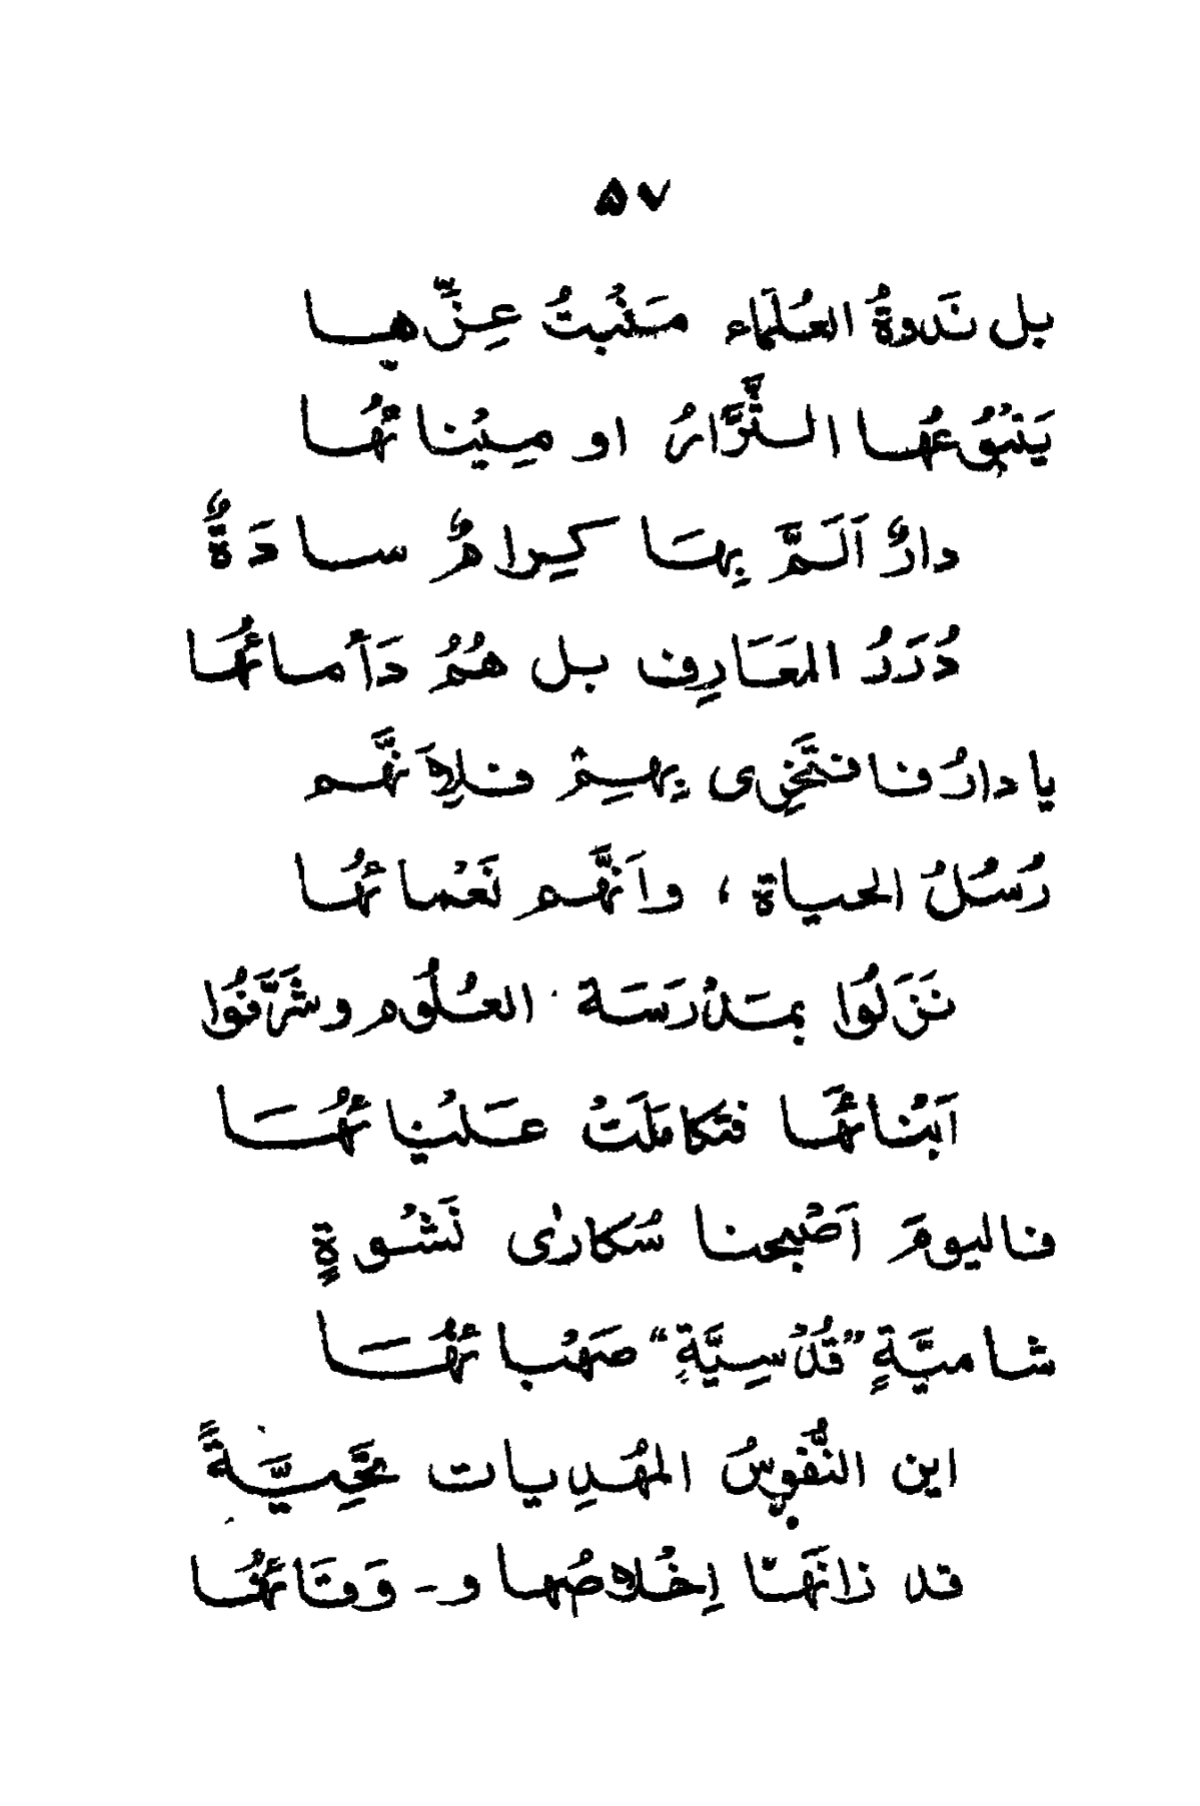 ۵۷
بل نَدوةُ العُلَماء مَنْبِتُ عِزِّهِا
يَنبُوعُها الثَّرَّارُ او مِيْنائُها
دارٌ اَلَمَّ بِهَا كِرامٌ سادَةٌ
دُرَرُ المَعَارِف بل هُمُ دَأمائُهَا
يا دارُ فافتَخِرِى بِهِمْ فلِاَنَّهم
رُسُلُ الحياة ، واَنَّهم نَعْمائُها
نَزَلُوا بمَدْرَسَة العُلُوم وشَرَّفُوا
اَبْنائَها فتكامَلَتْ عَلْيائُهَا
فاليومَ اَصْبحنا سُكارٰى نَشْوةٍ
شاميَّةٍ "قُدْسِيَّةٍ" صَهْبائُهَا
اين النُّفوسُ المُهدِيات تَحِيَّةً
قد زانَهَا اِخْلاصُها و - وَفَائُهَا